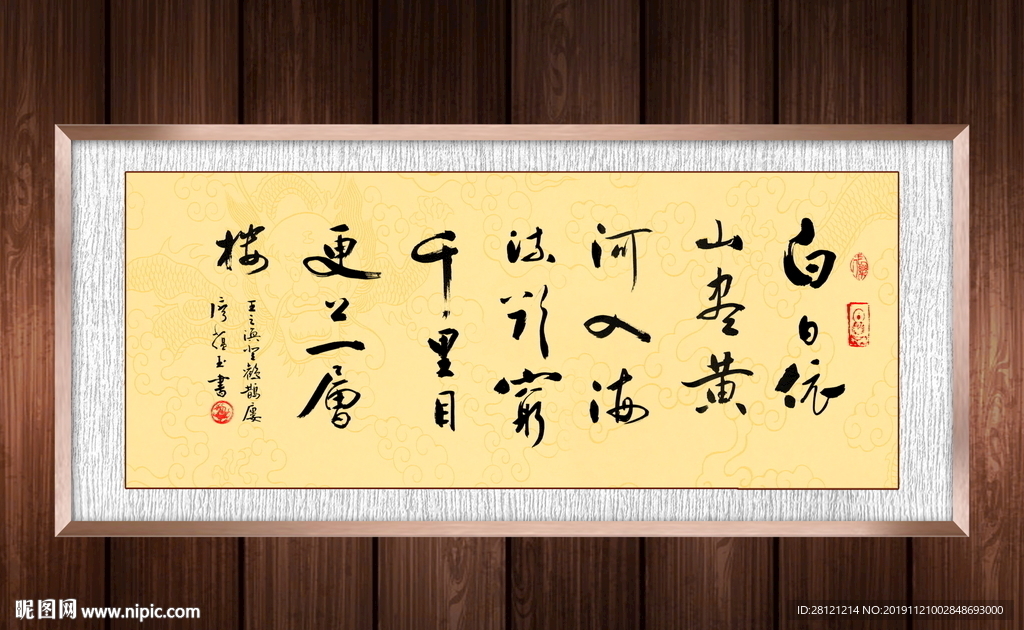 白日依
山尽黄
河入海
流欲穷
千里目
更上一层
楼
王之涣登鹳鹊楼
书
昵图网 www.nipic.com
ID:28121214 NO:20191121002848693000